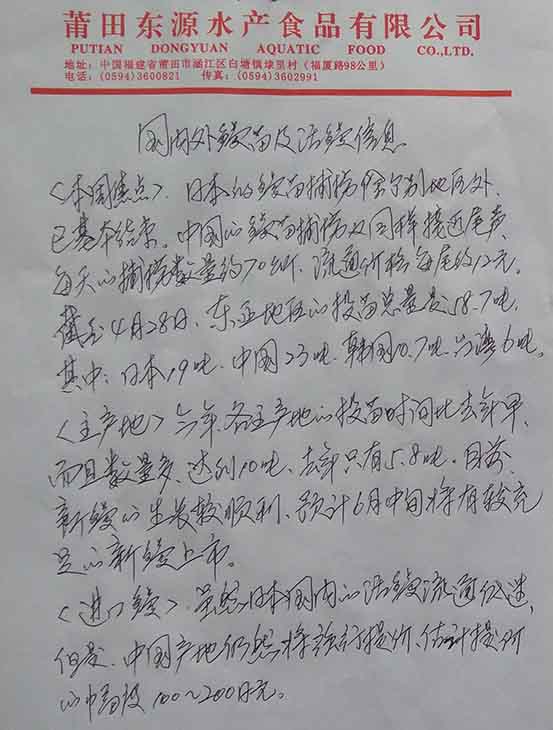 莆田东源水产食品有限公司
PUTIAN DONGYUAN AQUATIC FOOD CO.,LTD.
地址：中国福建省莆田市涵江区白塘镇埭里村（福厦路98公里）
电话：(0594)3600821 传真：(0594)3602991
国内外鳗苗及活鳗信息
<本周焦点>、日本的鳗苗捕捞除了别地区外、
已基本结束。中国的鳗苗捕捞及同样接近尾声、
每天的捕捞数量约70公斤、流通价格每尾约12元。
截至4月28日、东亚地区的投苗总量是58.7吨、
其中：日本19吨、中国23吨、韩国10.7吨、台湾6吨。
<主产地> 今年、各主产地的投苗时间比去年早、
而且数量多、达到10吨、去年只有5.8吨。目前、
新鳗的生长较顺利、预计6月中旬将有较充
足的新鳗上市。
<进口鳗>、虽然日本国内的活鳗流通低迷、
但是、中国产地仍然将强行提价、估计提价
的幅度100～200日元。